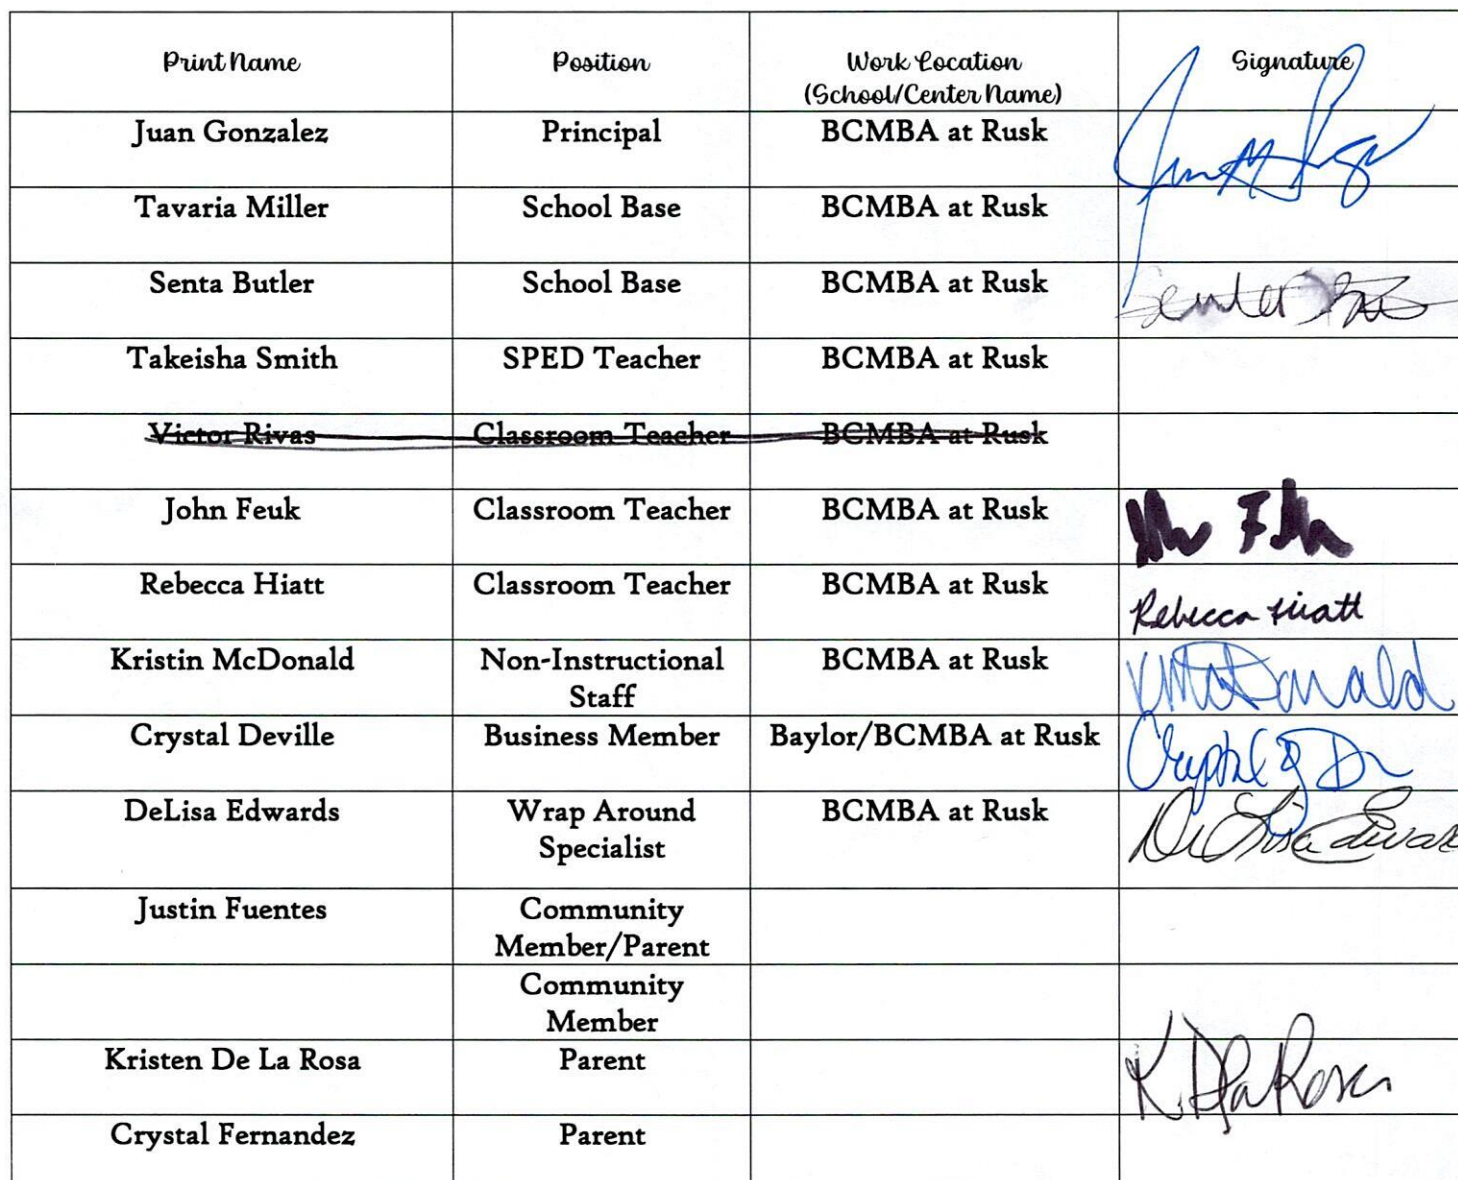 Print Name Position Work Location Signature
(School/Center Name)
Juan Gonzalez Principal BCMBA at Rusk
Tavaria Miller School Base BCMBA at Rusk
Senta Butler School Base BCMBA at Rusk
Takeisha Smith SPED Teacher BCMBA at Rusk
Victor Rivas Classroom Teacher BCMBA at Rusk
John Feuk Classroom Teacher BCMBA at Rusk
Rebecca Hiatt Classroom Teacher BCMBA at Rusk Rebecca Hiatt
Kristin McDonald Non-Instructional BCMBA at Rusk KMcDonald
Staff
Crystal Deville Business Member Baylor/BCMBA at Rusk
DeLisa Edwards Wrap Around BCMBA at Rusk
Specialist
Justin Fuentes Community
Member/Parent
Community
Member
Kristen De La Rosa Parent
Crystal Fernandez Parent